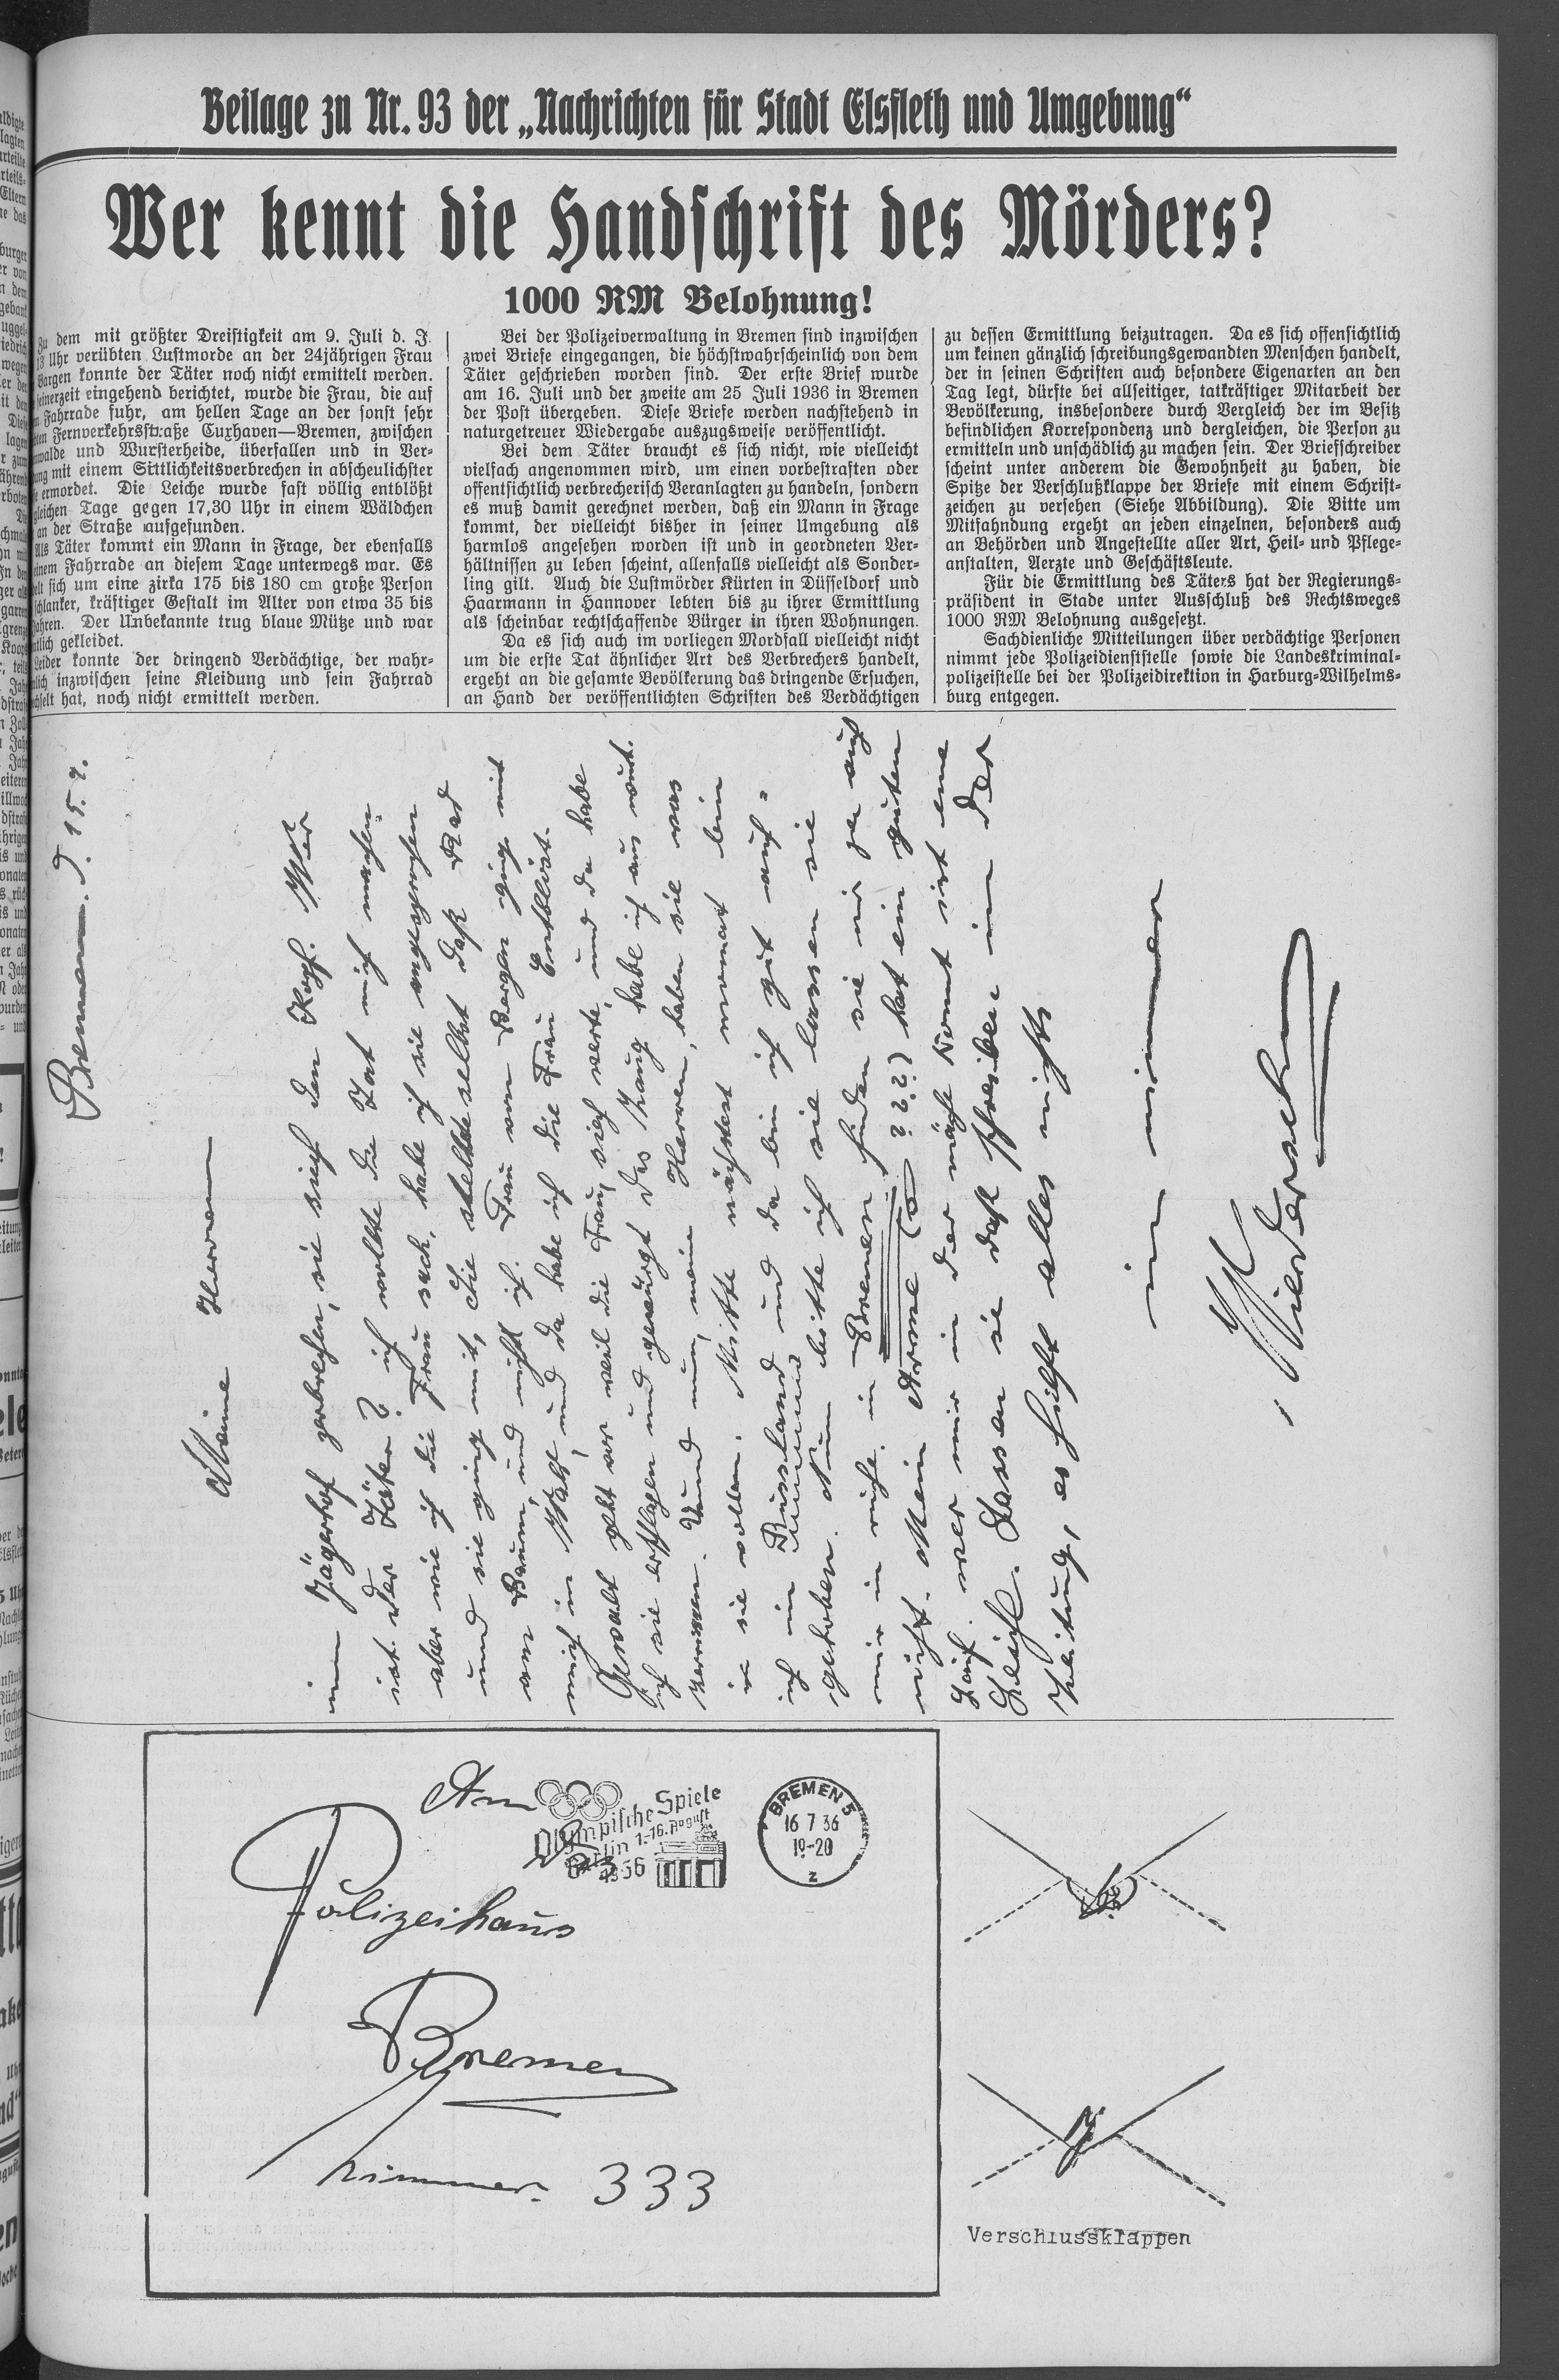 Beilage zu Nr. 93 der „Nachrichten für Stadt Elsfleth und Umgebung“
Wer kennt die Handschrift des Mörders?
1000 RM Belohnung!
Zu dem mit größter Dreistigkeit am 9. Juli d. J.
13 Uhr verübten Lustmorde an der 24jährigen Frau
Bargen konnte der Täter noch nicht ermittelt werden.
seinerzeit eingehend berichtet, wurde die Frau, die auf
Fahrrade fuhr, am hellen Tage an der sonst sehr
Fernverkehrsstraße Cuxhaven—Bremen, zwischen
und Wursterheide, überfallen und in Ver-
mit einem Sittlichkeitsverbrechen in abscheulichster
ermordet. Die Leiche wurde fast völlig entblößt
Tage gegen 17,30 Uhr in einem Wäldchen
an der Straße aufgefunden.
Als Täter kommt ein Mann in Frage, der ebenfalls
einem Fahrrade an diesem Tage unterwegs war. Es
sich um eine zirka 175 bis 180 cm große Person
schlanker, kräftiger Gestalt im Alter von etwa 35 bis
Jahren. Der Unbekannte trug blaue Mütze und war
gekleidet.
Leider konnte der dringend Verdächtige, der wahr-
inzwischen seine Kleidung und sein Fahrrad
hat, noch nicht ermittelt werden.
Bei der Polizeiverwaltung in Bremen sind inzwischen
zwei Briefe eingegangen, die höchstwahrscheinlich von dem
Täter geschrieben worden sind. Der erste Brief wurde
am 16. Juli und der zweite am 25 Juli 1936 in Bremen
der Post übergeben. Diese Briefe werden nachstehend in
naturgetreuer Wiedergabe auszugsweise veröffentlicht.
Bei dem Täter braucht es sich nicht, wie vielleicht
vielfach angenommen wird, um einen vorbestraften oder
offentsichtlich verbrecherisch Veranlagten zu handeln, sondern
es muß damit gerechnet werden, daß ein Mann in Frage
kommt, der vielleicht bisher in seiner Umgebung als
harmlos angesehen worden ist und in geordneten Ver-
hältnissen zu leben scheint, allenfalls vielleicht als Sonder-
ling gilt. Auch die Lustmörder Kürten in Düsseldorf und
Haarmann in Hannover lebten bis zu ihrer Ermittlung
als scheinbar rechtschaffende Bürger in ihren Wohnungen.
Da es sich auch im vorliegen Mordfall vielleicht nicht
um die erste Tat ähnlicher Art des Verbrechers handelt,
ergeht an die gesamte Bevölkerung das dringende Ersuchen,
an Hand der veröffentlichten Schriften des Verdächtigen
zu dessen Ermittlung beizutragen. Da es sich offensichtlich
um keinen gänzlich schreibungsgewandten Menschen handelt,
der in seinen Schriften auch besondere Eigenarten an den
Tag legt, dürfte bei allseitiger, tatkräftiger Mitarbeit der
Bevölkerung, insbesondere durch Vergleich der im Besitz
befindlichen Korrespondenz und dergleichen, die Person zu
ermitteln und unschädlich zu machen sein. Der Briefschreiber
scheint unter anderem die Gewohnheit zu haben, die
Spitze der Verschlußklappe der Briefe mit einem Schrift-
zeichen zu versehen (Siehe Abbildung). Die Bitte um
Mitfahndung ergeht an jeden einzelnen, besonders auch
an Behörden und Angestellte aller Art, Heil- und Pflege-
anstalten, Aerzte und Geschäftsleute.
Für die Ermittlung des Täters hat der Regierungs-
präsident in Stade unter Ausschluß des Rechtsweges
1000 RM Belohnung ausgesetzt.
Sachdienliche Mitteilungen über verdächtige Personen
nimmt jede Polizeidienststelle sowie die Landeskriminal-
polizeistelle bei der Polizeidirektion in Harburg-Wilhelms-
burg entgegen.
Bremen. d. 15. 7.
Meine Herren
im Jägerhof zerbrechen, sie sich den Kopf. Wer
ist der Täter? ich wollte die Tat nich machen
aber wie ich die Frau sach, habe ich sie angesprochen
und sie ging mit, die stellte selbst daß Rad
am Baum, und nicht ich. Frau von Bargen ging mit
mich in Walt, und da habe ich die Frau Entblöst.
Gewalt geht vor weil die Frau, sich werte, und da habe
ich sie erschlagen und gewürgt das Zaug habe ich aus wut.
zerrissen. Und nun, meine Herren, haben sie was
sie wollen. Mitte nächsten monat bin
ich im Russland und da bin ich gut auf-
gehoben. Nun bitte ich sie lassen sie
mir in ruhe. in Bremen finden sie mir ja auch
nicht. Mein Arme ??? hat ein guten
Lauf. wer mir in der nähe komt ist eine
Leiche. Lassen sie daß schreiben in der
Zeitung, es hilft alles nichts
im nimmer
Wiedersehn
An
Das
Polizeihaus
Bremen
nimmer. 333
Olympische Spiele
Berlin 1.-16. August
1936
BREMEN 5
16 7 36
19-20
z
Verschlussklappen